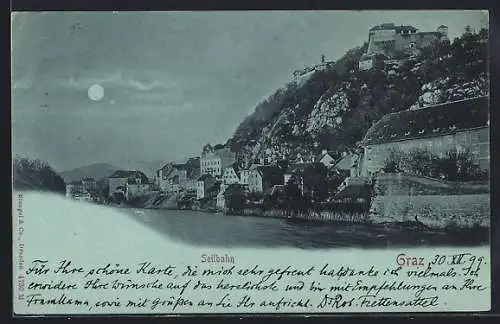 Seilbahn
Graz, 30. XII. 99.
Für Ihre schöne Karte, die mich sehr gefreut hat, danke ich vielmals. Ich
erwidere Ihre Wünsche auf das herzlichste und bin mit Empfehlungen an Ihre
Frau Mama, sowie mit Grüßen an Sie Ihr aufricht. Dr Rob.
Stengel & Co., Dresden 4280 M